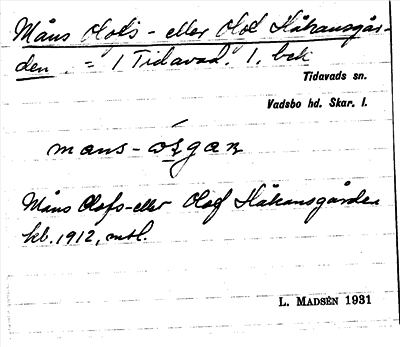 Måns Olofs- eller Olof Håkansgår-
den. = 1 Tidavad. 1. bck
Tidavads sn.
Vadsbo hd. Skar. l.
mans-ósgaʀ
Måns Olofs- eller Olof Håkansgården
kb. 1912, mtl.
L. MADSÉN 1931